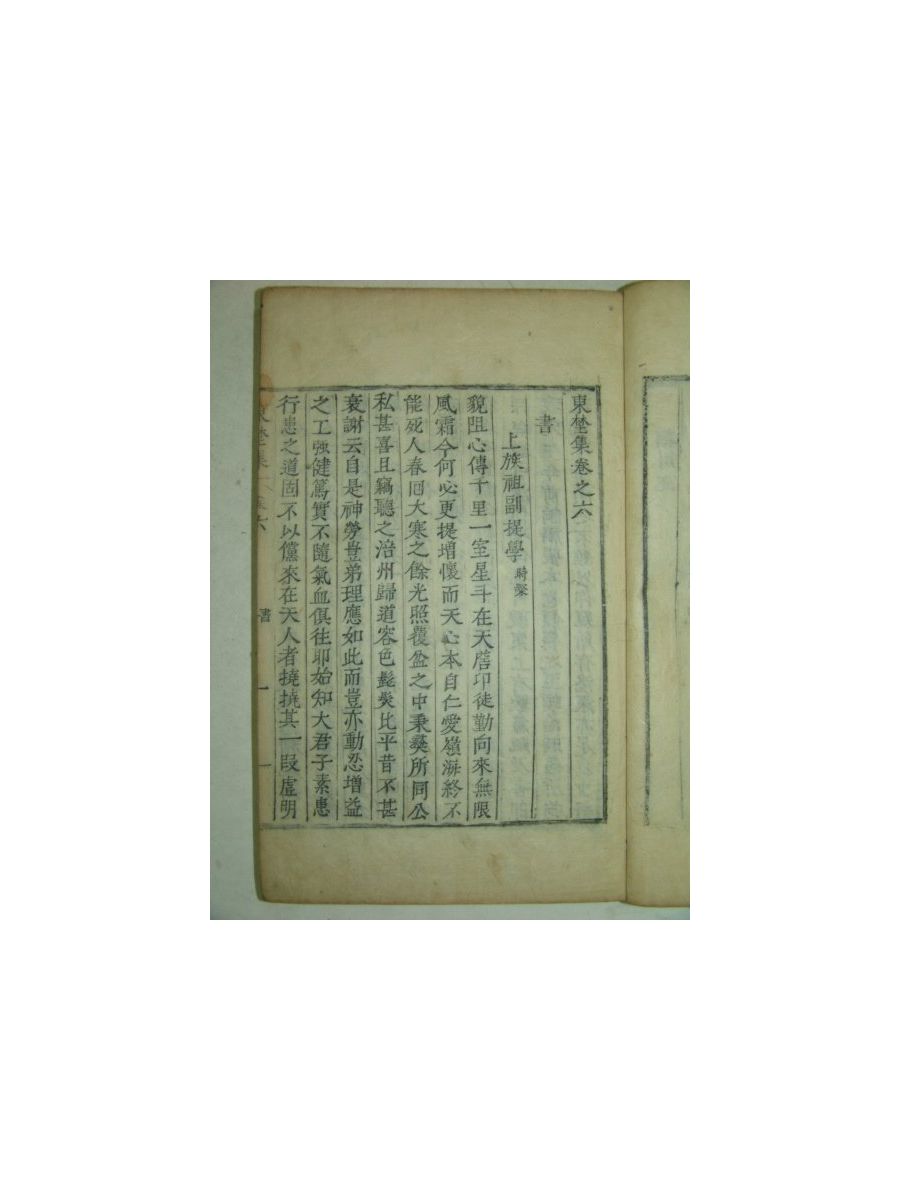 東埜集卷之六
書
上族祖副提學 時檠
貌阻心傳千里一室星斗在天鹿卬徒勤向來無限
風霜今何必更提增懷而天心本自仁愛嶺海終不
能死人春回大寒之餘光照覆盆之中秉彜所同公
私甚喜且竊聽之涪州歸道容色髭髮比平昔不甚
衰謝云自是神勞豈弟理應如此而豈亦動忍增益
之工強健篤實不隨氣血俱往耶始知大君子素患
行患之道固不以儻來在天人者撓撓其一段虛明
東埜集 卷六
書
一